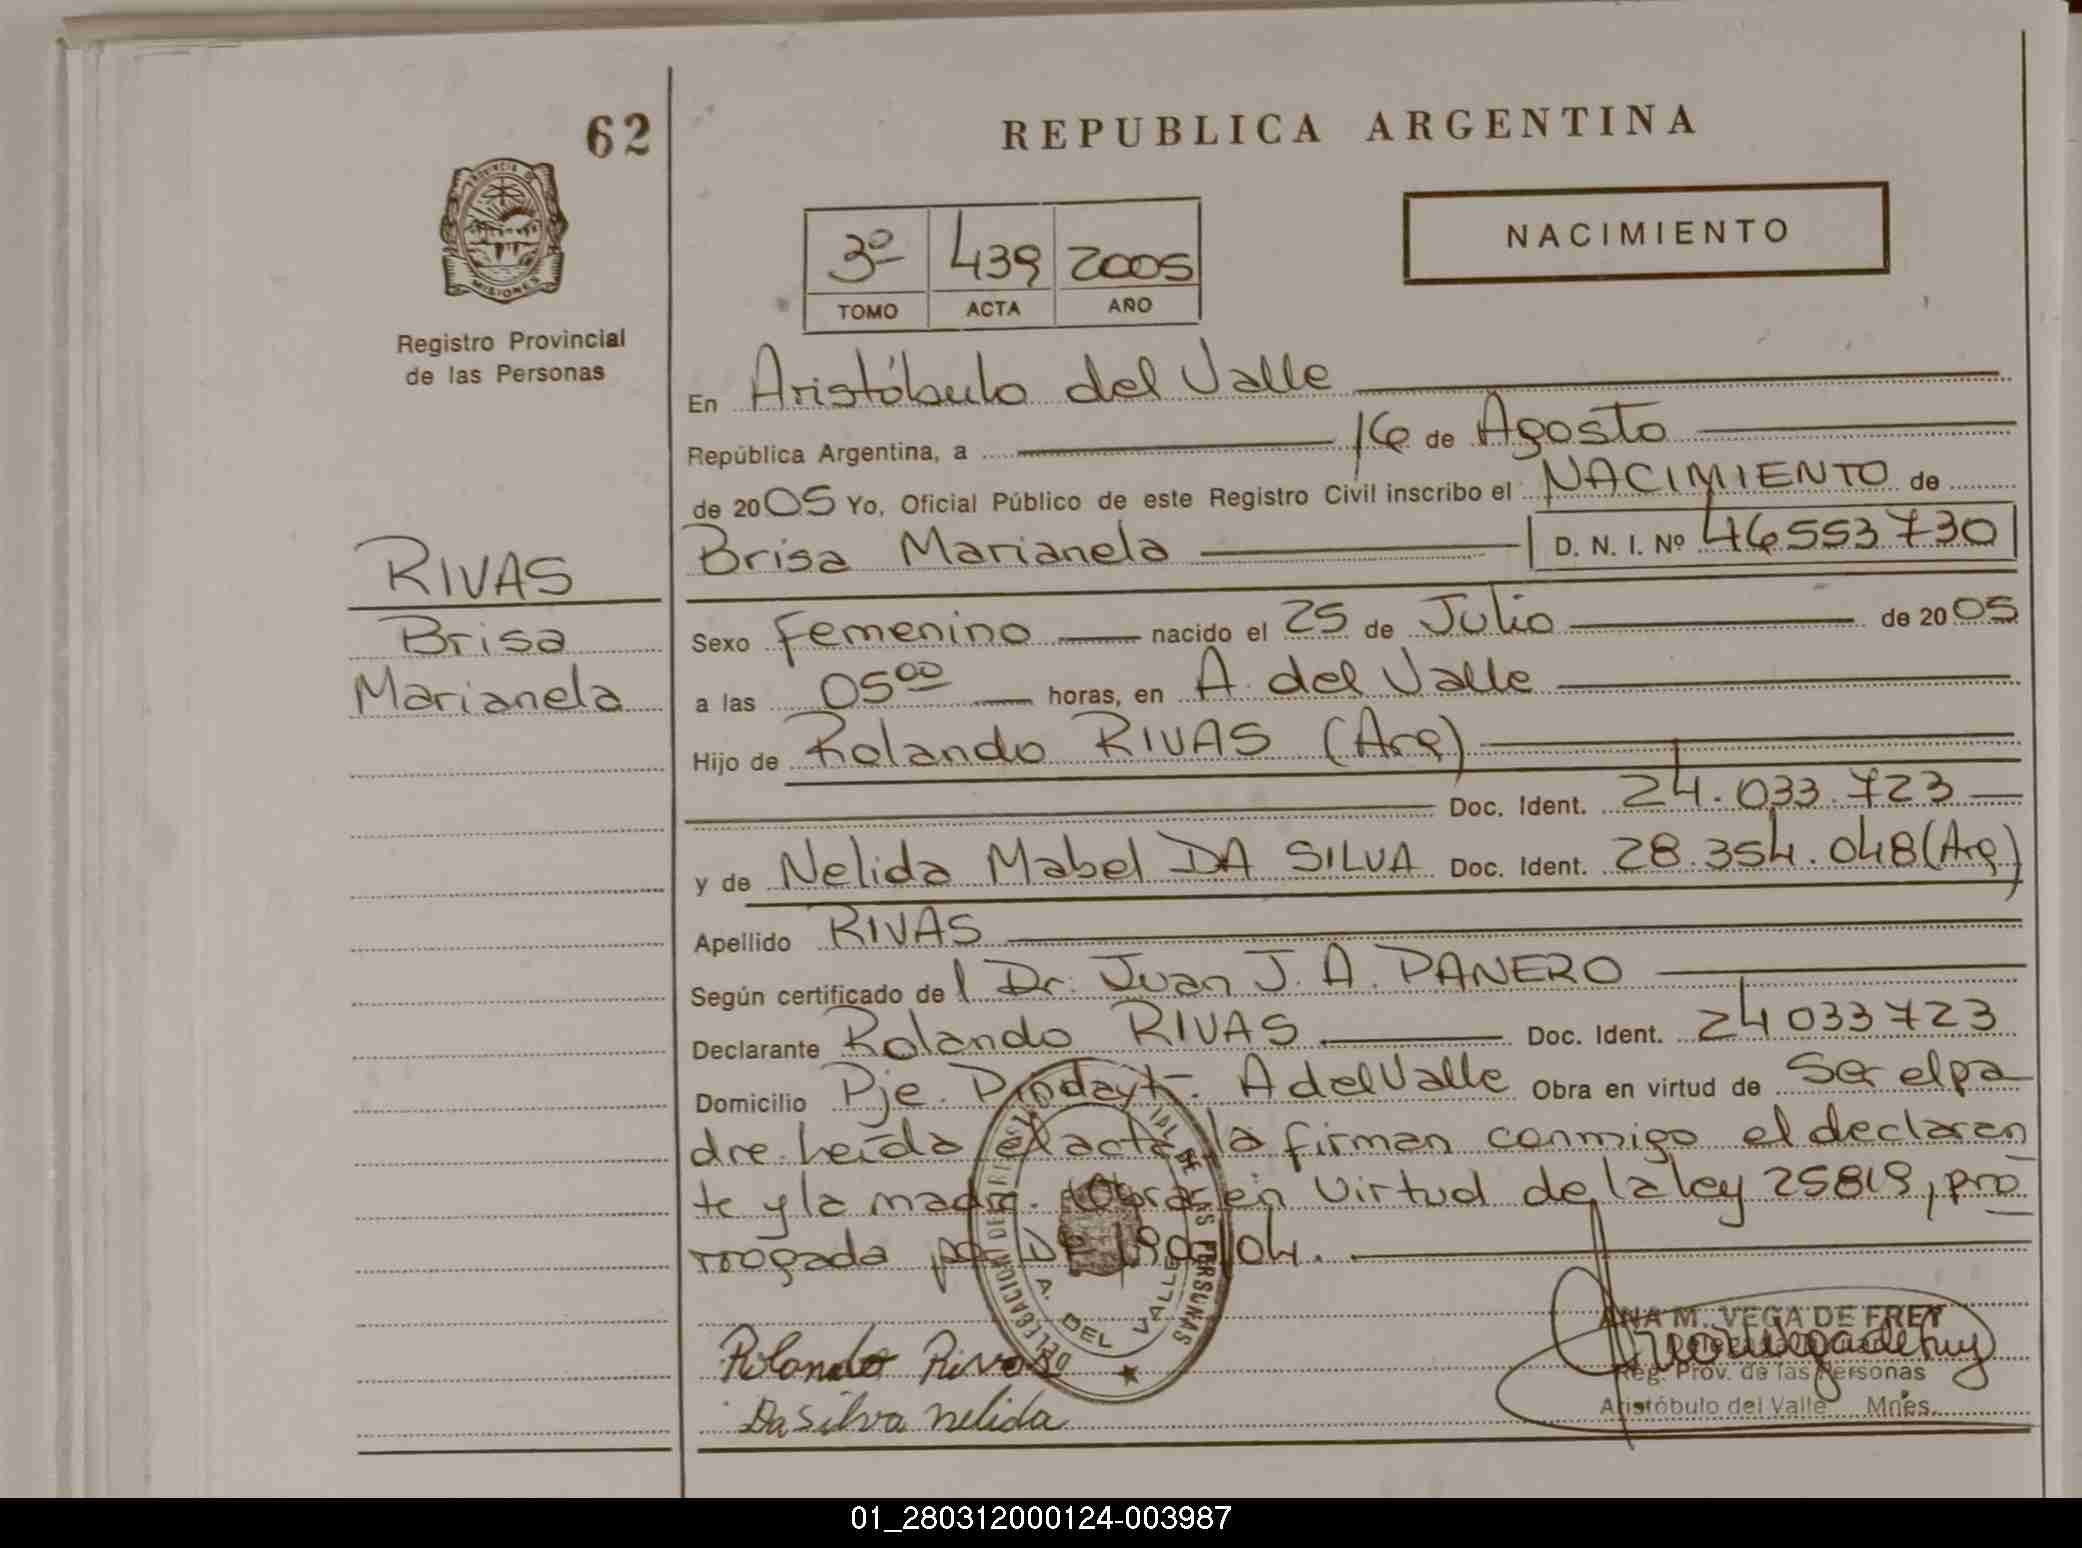 62
REPUBLICA ARGENTINA
PROVINCIA DE
MISIONES
Registro Provincial
de las Personas
3º 439 2005
TOMO ACTA AÑO
NACIMIENTO
En Aristóbulo del Valle
República Argentina, a 16 de Agosto
de 2005 Yo, Oficial Público de este Registro Civil inscribo el NACIMIENTO de
Brisa Marianela D. N. I. Nº 46553730
RIVAS
Brisa
Marianela
Sexo Femenino nacido el 25 de Julio de 2005
a las 0500 horas, en A. del Valle
Hijo de Rolando RIVAS (Arg)
Doc. Ident. 24.033.723
y de Nelida Mabel DA SILVA Doc. Ident. 28.354.048 (Arg)
Apellido RIVAS
Según certificado del Dr. Juan J. A. PANERO
Declarante Rolando RIVAS Doc. Ident. 24033723
Domicilio Pje. Pindayti- A del Valle Obra en virtud de Ser el pa
dre. Leída el acta, la firman conmigo el declaran
te y la madre. Obrar en virtud de la ley 25819, pro
rrogada por /04.
DELEGACION DE REGISTRO DE LAS PERSONAS
A. DEL VALLE
Rolando Rivas
Da Silva nelida
ANA M. VEGA DE FREY
Reg. Prov. de las Personas
Aristóbulo del Valle Mnes.
01_280312000124-003987